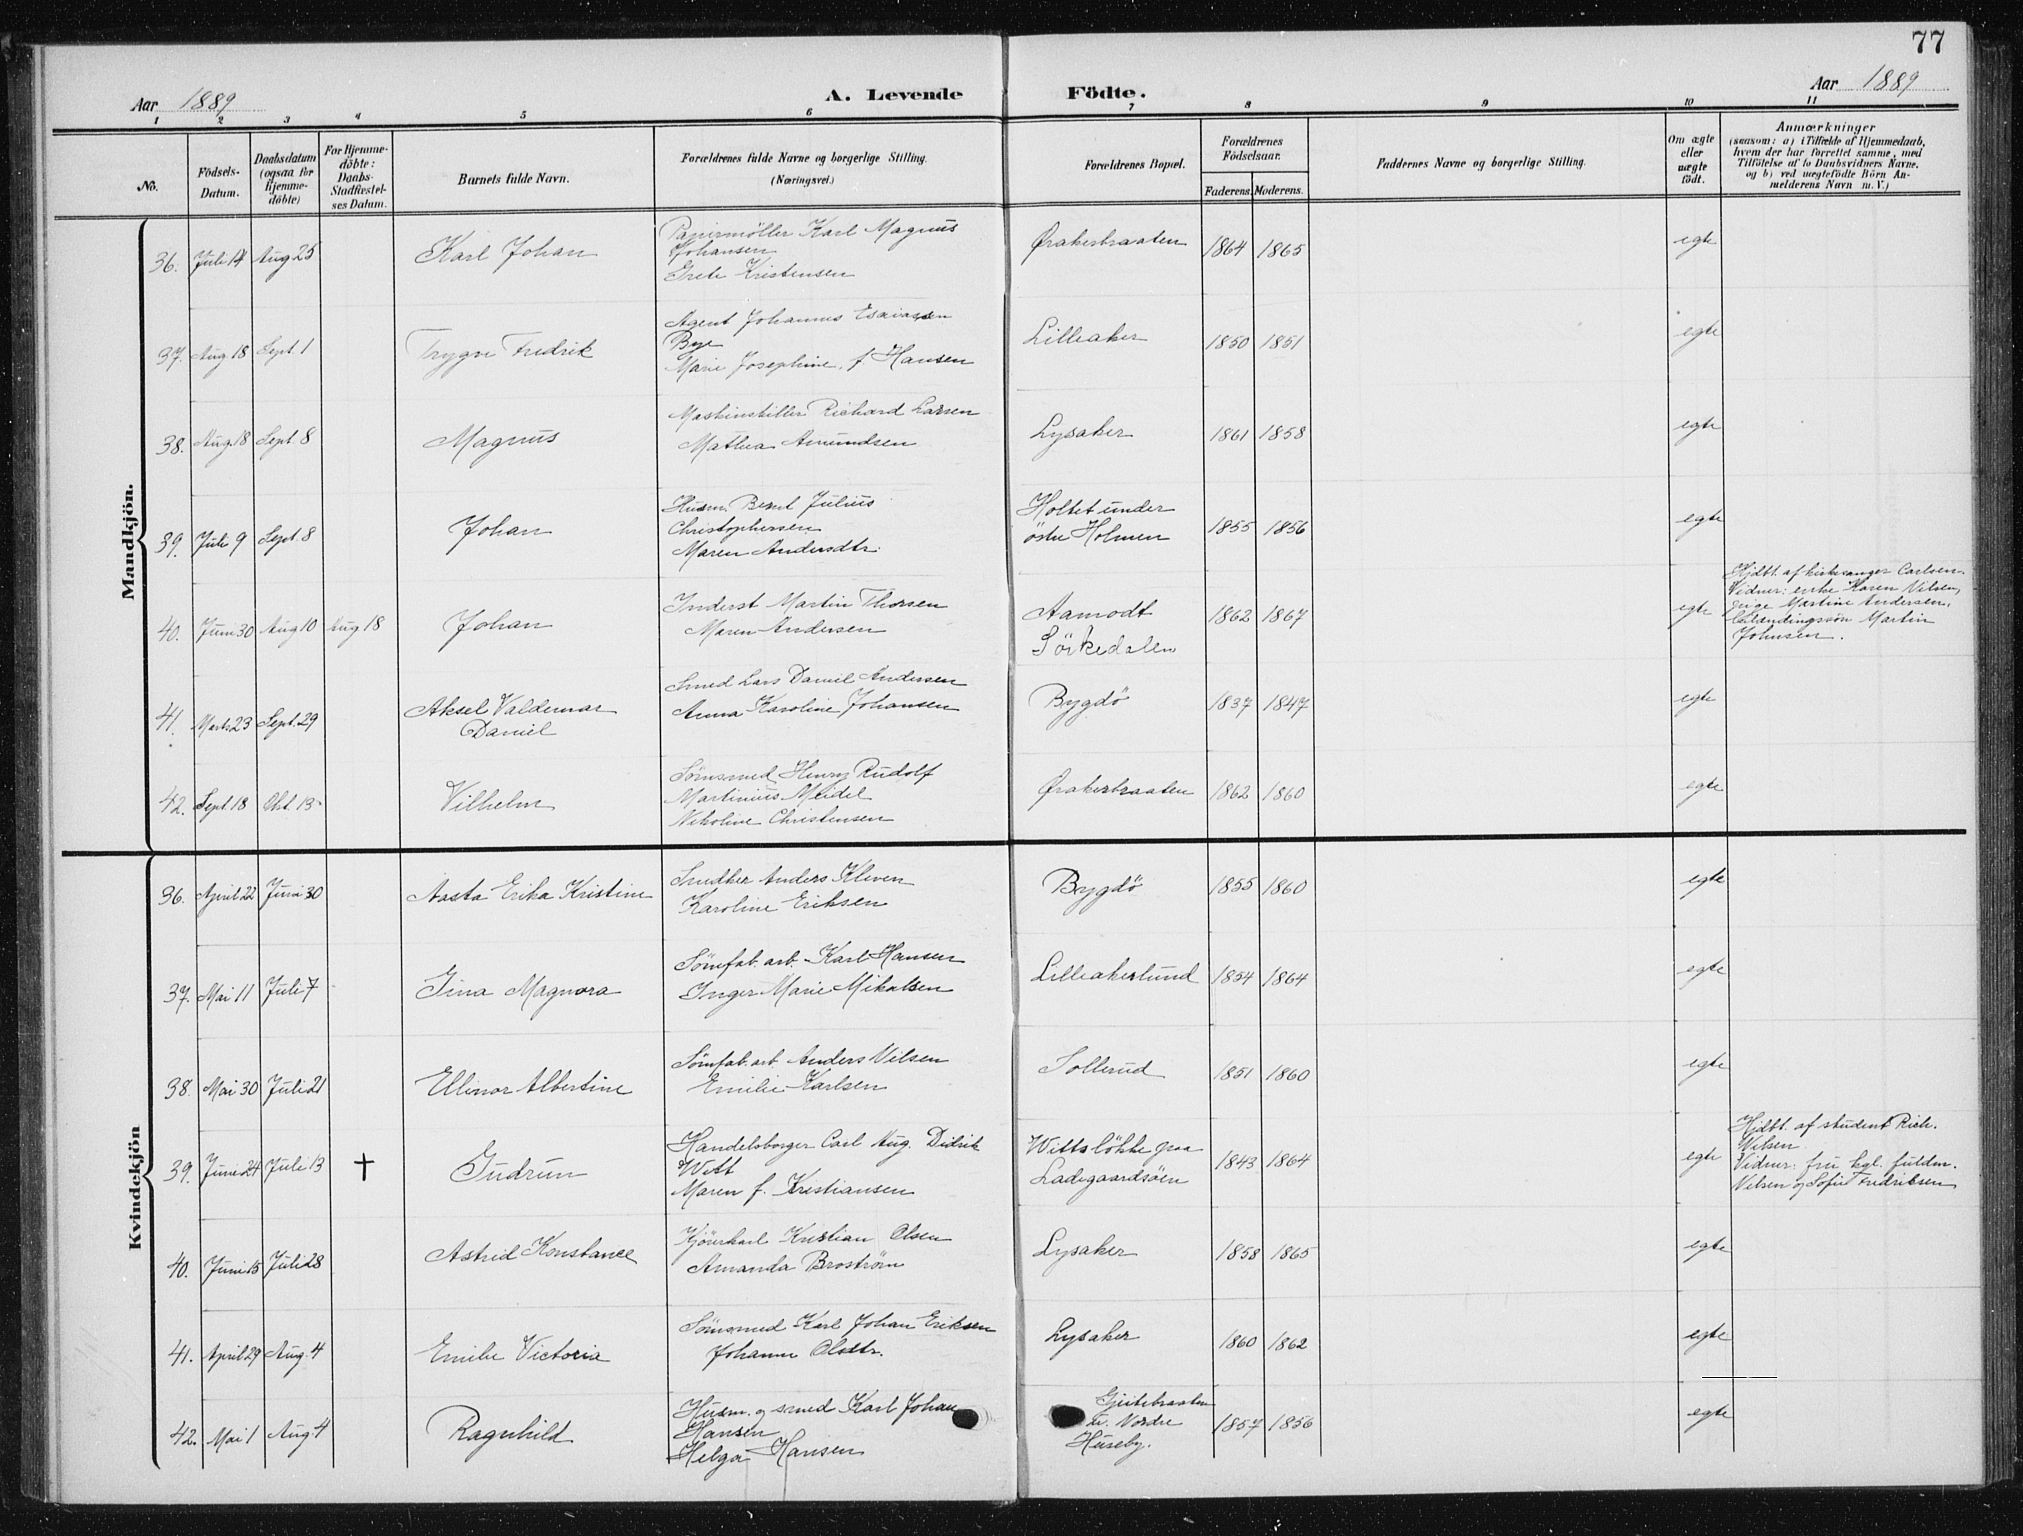 77
Aar 1889
A. Levende Födte.
Aar 1889
1 2 3 4 5 6 7 8 9 10 11
No.
Födsels-
Datum.
Daabsdatum
(ogsaa for
Hjemme-
döbte)
For Hjemme-
döbte:
Daabs-
Stadfæstel-
ses Datum.
Barnets fulde Navn.
Forældrenes fulde Navne og borgerlige Stilling.
(Næringsvei.)
Forældrenes Bopæl.
Forældrenes
Födselsaar.
Faderens. Moderens.
Faddernes Navne og borgerlige Stilling.
Om ægte
eller
uægte
födt.
Anmærkninger
(saasom: a) i Tilfælde af Hjemmedaab,
hvem der har forrettet samme, med
Tilföielse af to Daabsvidners Navne.
og b) ved uægtefödte Börn An-
melderens Navn m. V.)
Mandkjön.
36. Juli 14 Aug 25 Karl Johan
Papirmöller Karl Magnus
Johansen
Grete Kristensen
Ørakerbraaten 1864 1865 egte
37. Aug 18 Sept. 1 Trygve Fredrik
Agent Johannes Esaiassen
Bye
Marie Josephine f. Hansen
Lilleaker 1850 1851 egte
38. Aug. 18 Sept 8 Magnus
Maskinstiller Richard Larsen
Mathea Amundsen
Lysaker 1861 1858 egte
39. Juli 9 Sept. 8 Johan
Husm. Bernt Julius
Christophersen
Maren Andersdtr.
Holtet under
östre Holmen
1855 1856 egte
40. Juni 30 Aug 10 Aug 18 Johan
Inderst Martin Thorsen
Maren Andersen
Aamodt
Sörkedalen
1862 1867 egte
Hjdbt. af kirkesanger Carlsen.
Vidner: enke Karen Nilsen,
pige Martine Andersen,
Martin
Johnsen.
41. Marts 23 Sept. 29 Aksel Valdemar
Daniel
Smed Lars Daniel Andersen
Anna Karoline Johansen
Bygdö 1837 1847 egte
42. Sept. 18 Okt. 13 Vilhelm
Sömsmed Henry Rudolf
Martinius Meidel
Nikoline Christensen
Ørakerbraaten 1862 1860 egte
Kvindekjön
36. April 22 Juni 30 Aasta Erika Kristine
Snedker Anders Kleven
Karoline Eriksen
Bygdö 1855 1860 egte
37. Mai 11 Juli 7 Jina Magnora
Sömfab. arb. Karl Hansen
Inger Marie Mikalsen
Lilleakerlund 1854 1864 egte
38. Mai 30 Juli 21 Ellinor Albertine
Sömfab. arb. Anders Nilsen
Emilie Karlsen
Sollerud 1851 1860 egte
39. Juni 24 Juli 13 † Gudrun
Handelsborger Carl Aug. Didrik
Witt
Maren f. Kristiansen
Wittslökke paa
Ladegaardsöen
1843 1864 egte
Hjdbt. af student Rich.
Nilsen
Vidner: fru kgl. fuldm.
Nilsen og Sofie Fredriksen
40. Juni 15 Juli 28 Astrid Konstance
Kjörekarl Kristian Olsen
Amanda Broström
Lysaker 1858 1865 egte
41. April 29 Aug. 4 Emilie Victoria
Sömsmed Karl Johan Eriksen
Johanne Olsdtr.
Lysaker 1860 1862 egte
42. Mai 1 Aug 4 Ragnhild
Husm. og smed Karl Johan
Hansen
Helga Hansen
Gjeitebraaten
u. Nordre
Huseby.
1857 1856 egte